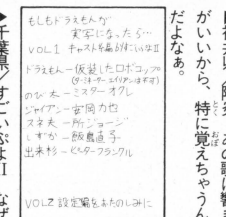 がいいから、特に覚えちゃうん
だよなぁ。
もしもドラえもんが
実写になったら…
VOL1 キャストを品がすにいいなⅡ
ドラえもん─仮装したロボコップ
(ターミネーター、エイリアンは不可)
のび太─ミスターオクレ
ジャイアン─安岡力也
スネ夫─所ジョージ
しずか─飯島直子
出来杉─ピーターフランクル
VOL2 設定編をおたのしみに